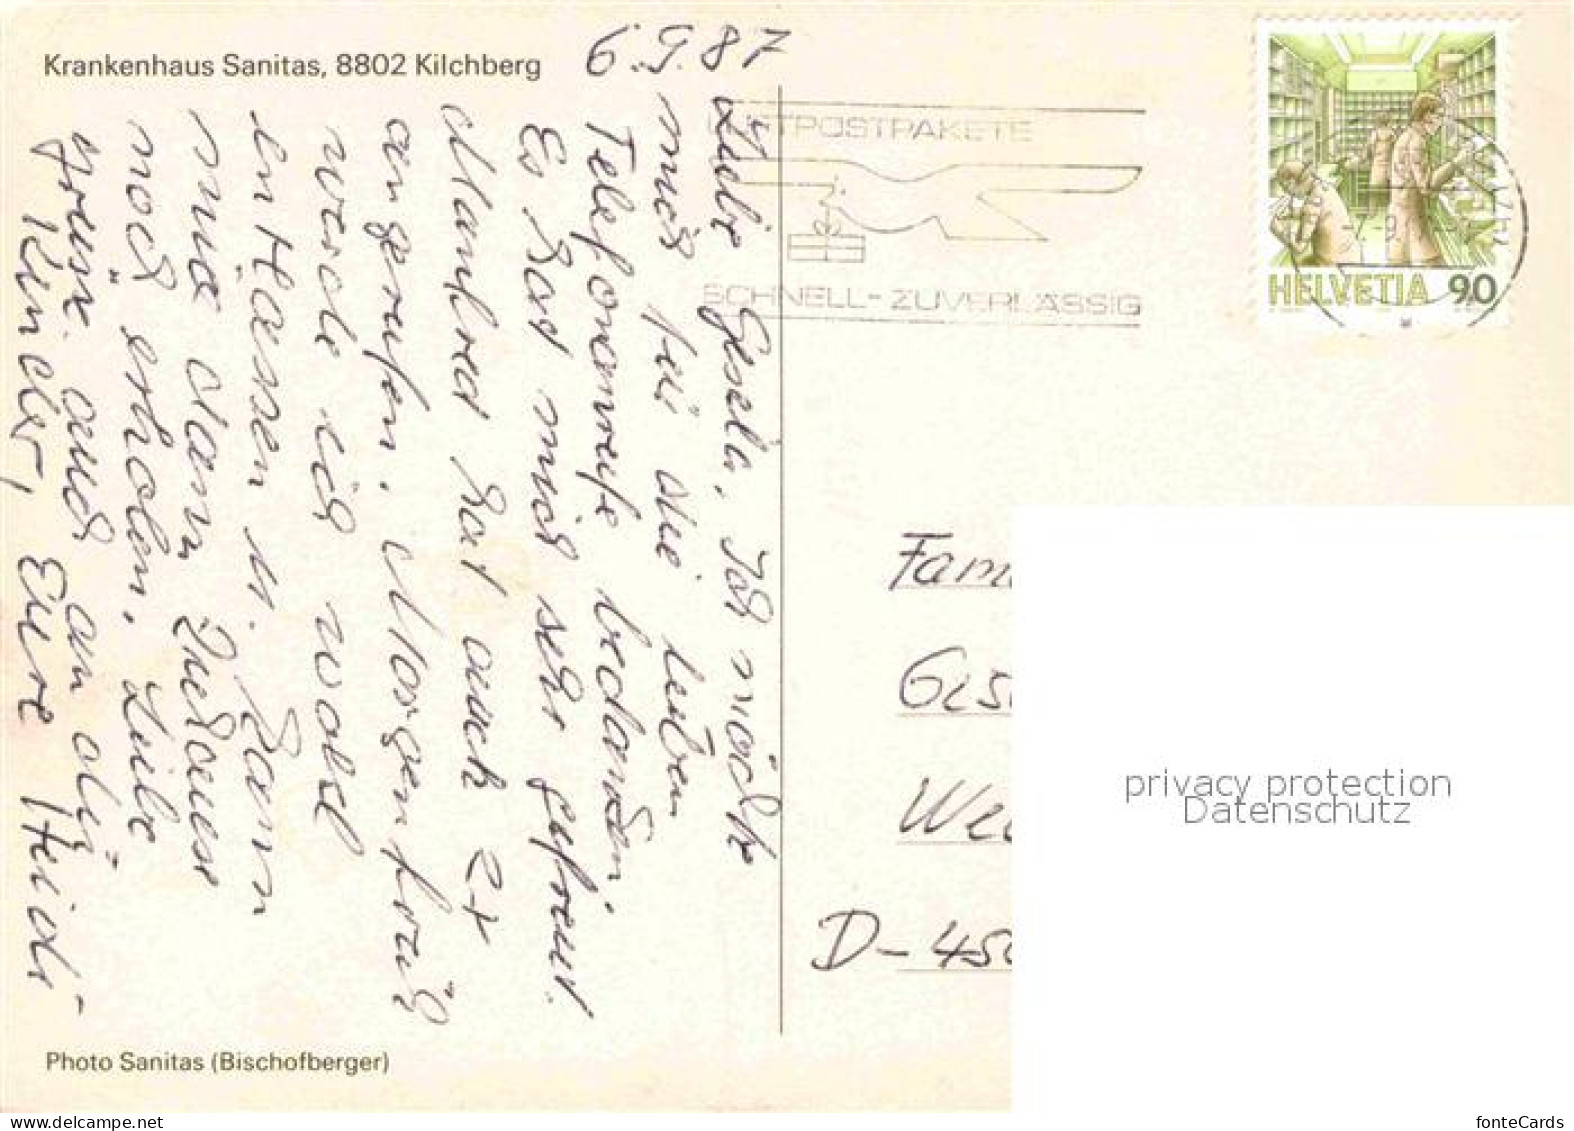 Krankenhaus Sanitas, 8802 Kilchberg
6.9.87
Liebe Gisela, Ich möchte
mich für die lieben
Telefonanrufe bedanken.
Es hat mich sehr gefreut.
Manfred hat auch 2x
angerufen. Morgen früh
werde ich wohl
entlassen u. kann
mich dann Zuhause
noch erholen. Liebe
Grüsse auch an die
Kinder, Eure Heidi
LUFTPOSTPAKETE
SCHNELL-ZUVERLÄSSIG
HELVETIA 90
Fam
Gis
We
D-450
privacy protection
Datenschutz
Photo Sanitas (Bischofberger)
fonteCards